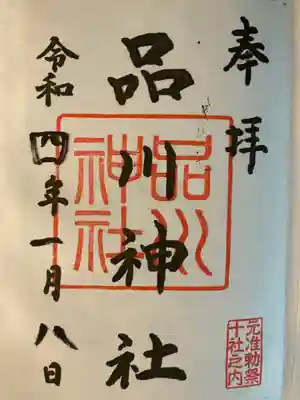 奉拝
品川神社
品川神社
元准勅祭
十社之内
令和四年一月八日